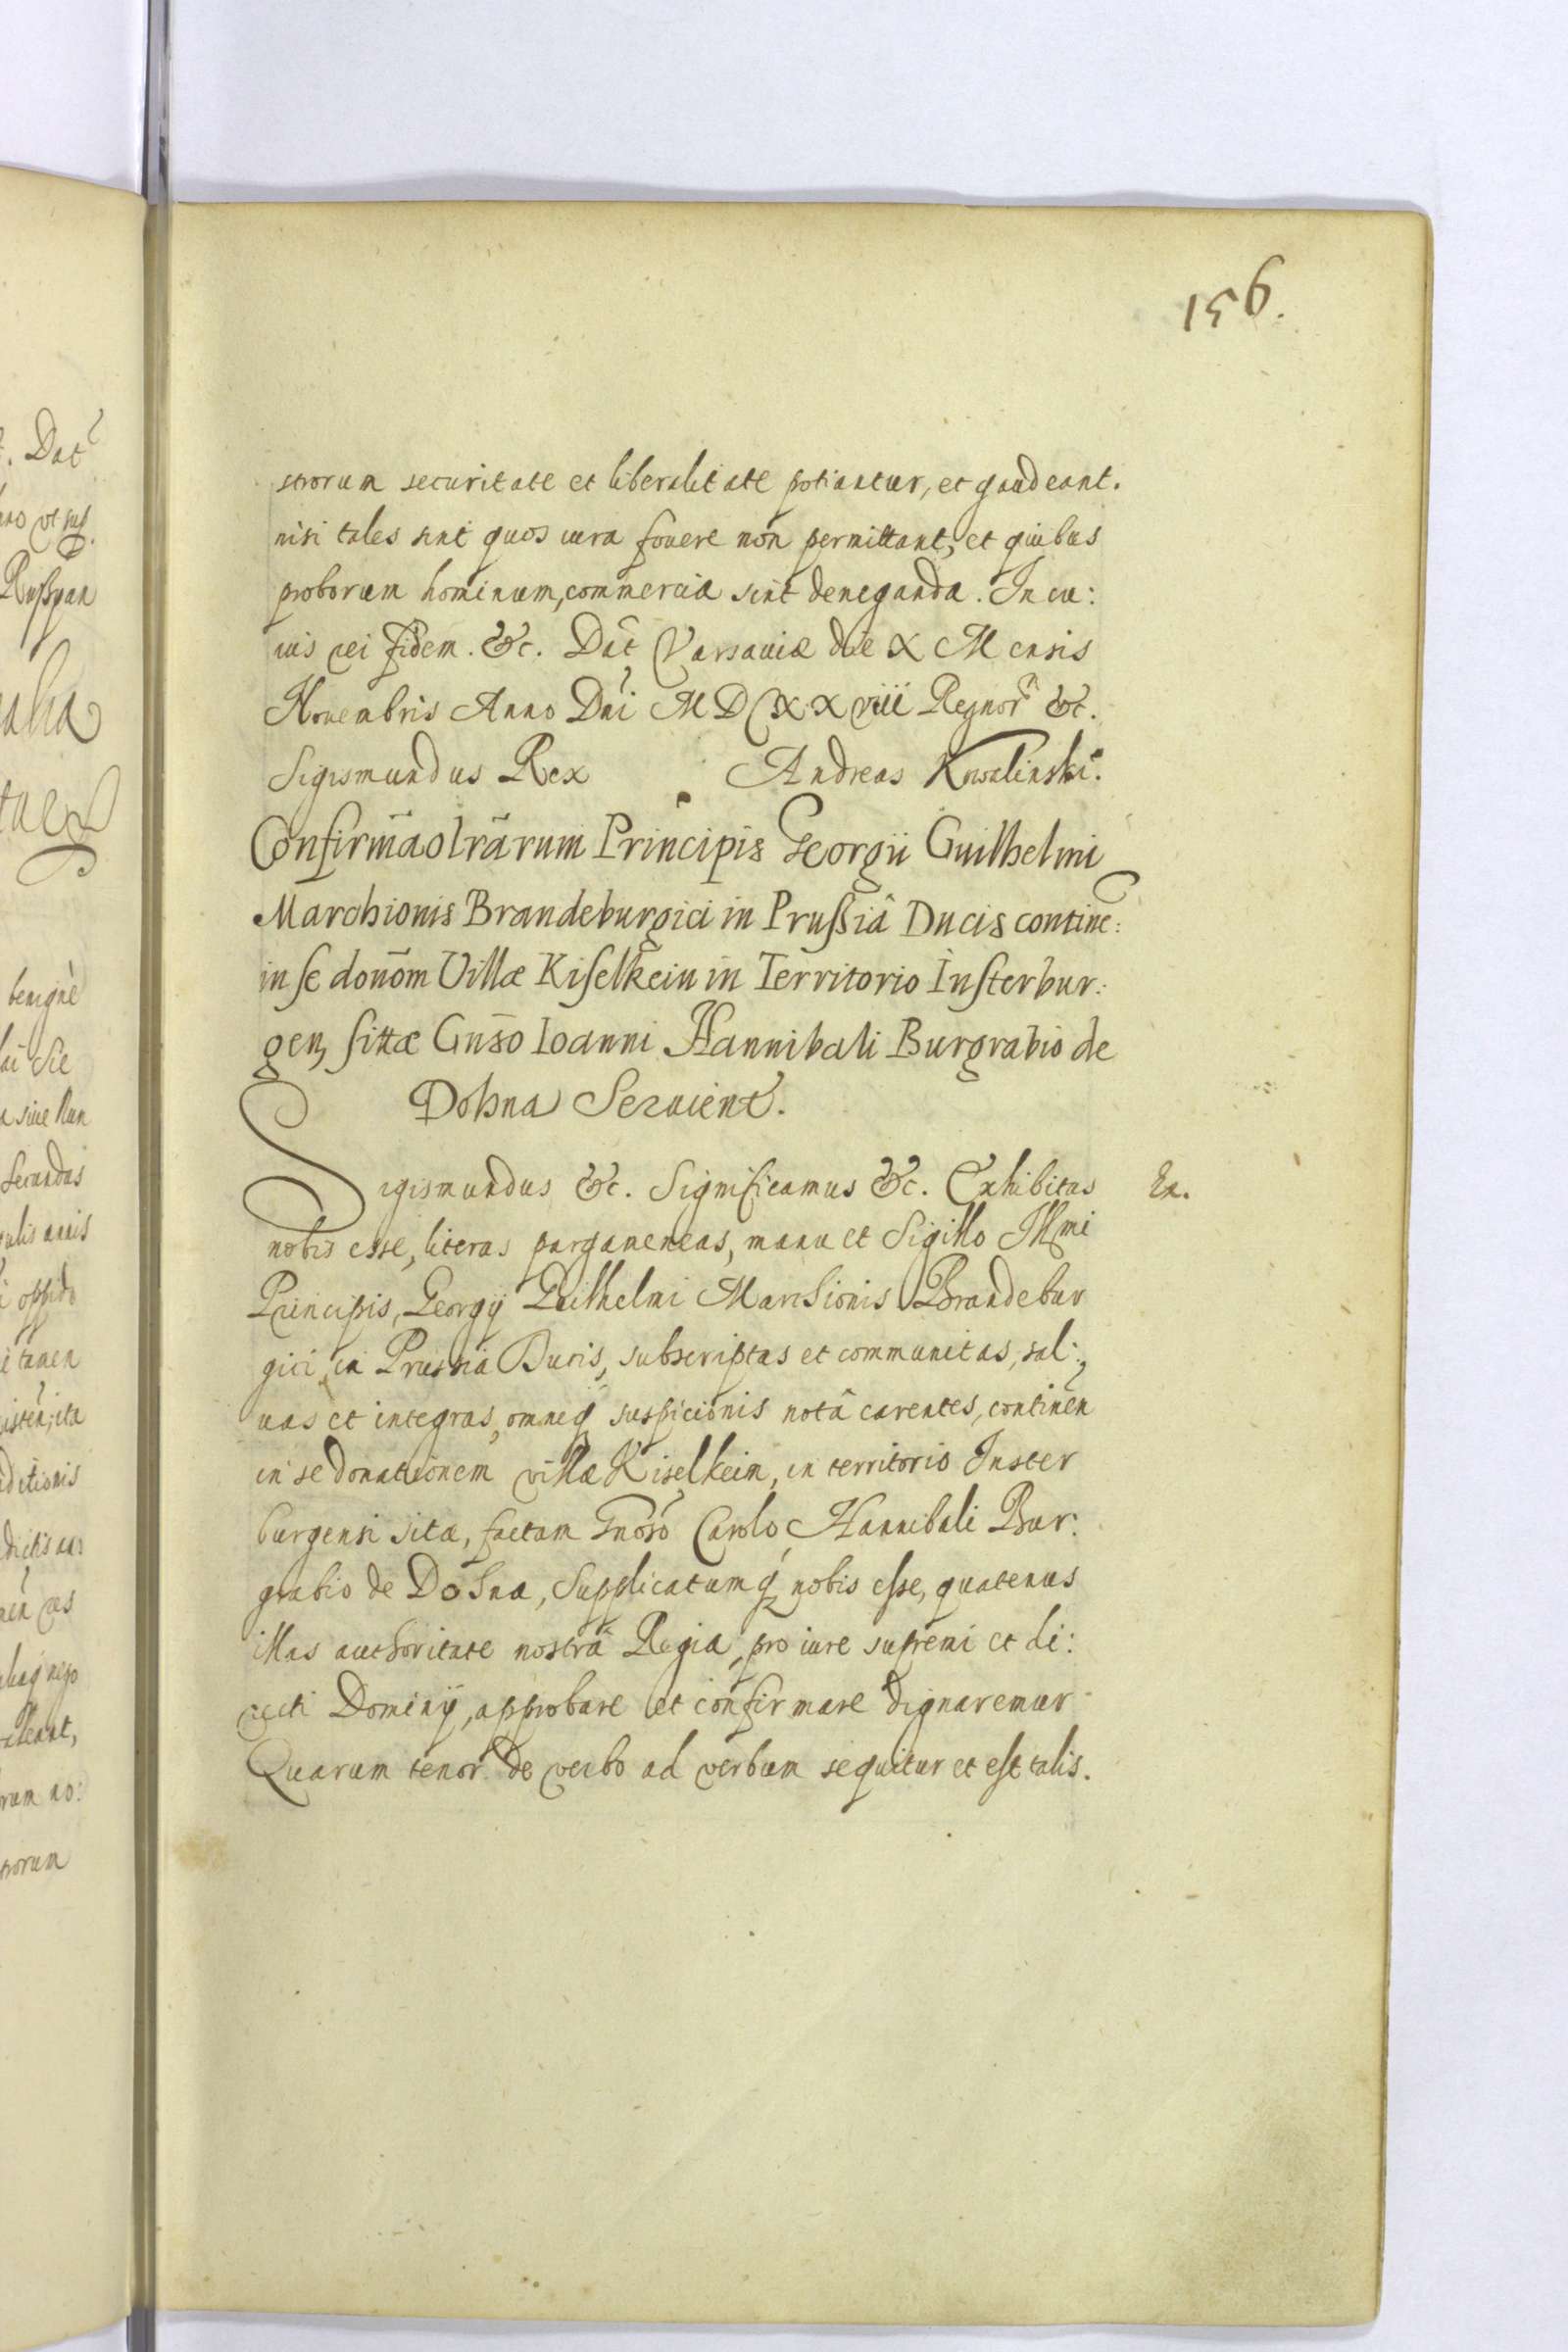 156.
strorum securitate et liberalitate potiantur, et gaudeant.
nisi tales sint quos iura fouere non permittant, et quibus
proborum hominum, commercia sint deneganda. In cu:
ius rei fidem. &c. Dat̃ Varsauiæ die X Mensis
Nouembris Anno Dñi MDCXXviii Regnor̃ &c.
Sigismundus Rex Andreas Kowalinski.
Confirmãolrãrum Principis Georgii Guilhelmi
Marchionis Brandeburgici in Prußiâ Ducis contine:
in se donõm Villæ Kiselkein in Territorio Insterbur:
gen, sittæ Gnso Ioanni Hannibali Burgrabio de
Dohna Seruient.
Sigismundus &c. Significamus &c. Exhibitas
Ex.
nobis esse, literas pargameneas, manu et Sigillo Illmi
Principis, Georgij Guilhelmi Marchionis Brandebur
gici in Prussia Ducis, subscriptas et communitas, sal:
uas et integras, omneq suspicionis notâ carentes, continen̄
in se donationem villæ Kiselkein, in territorio Inster
burgensi sitæ, factam Gnoso Carolo Hannibali Bur:
grabio de Dohna, Supplicatumq nobis esse, quatenus
illas authoritate nostrâ Regia, pro iure supremi et di:
recti Dominij, approbare et confirmare dignaremur
Quarum tenor de verbo ad verbum sequitur et est talis.